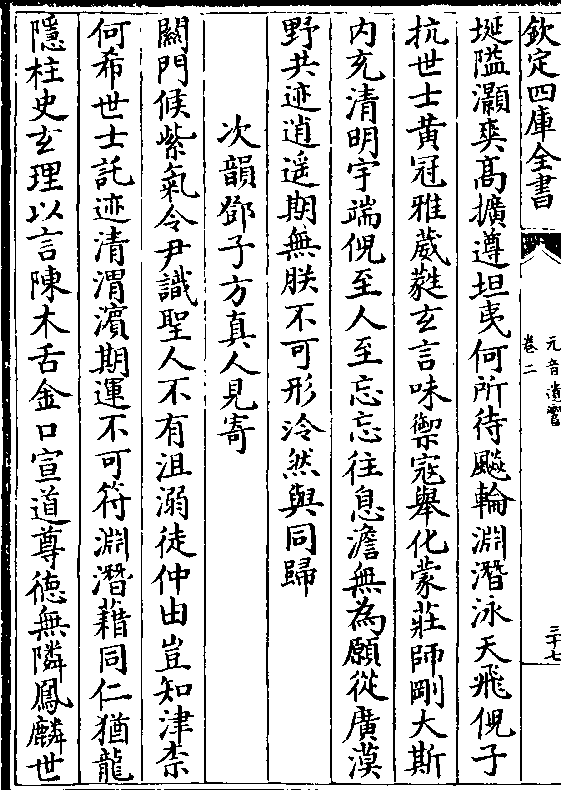 欽定四庫全書
元音遺響
卷二
三十七
埏隘灝爽高擴遵坦夷何所待飈輪淵潛泳天飛倪子
抗世士黄冠雅葳蕤玄言味禦寇舉化蒙莊師剛大斯
内充清明宇端倪至人至忘忘往息澹無為願從廣漠
野共迹逍遥期無朕不可形泠然與同歸
次韻鄧子方真人見寄
關門候紫氣令尹識聖人不有沮溺徒仲由豈知津柰
何希世士託迹清渭濵期運不可符淵潛藉同仁猶龍
隱柱史玄理以言陳木舌金口宣道尊徳無隣鳳麟世